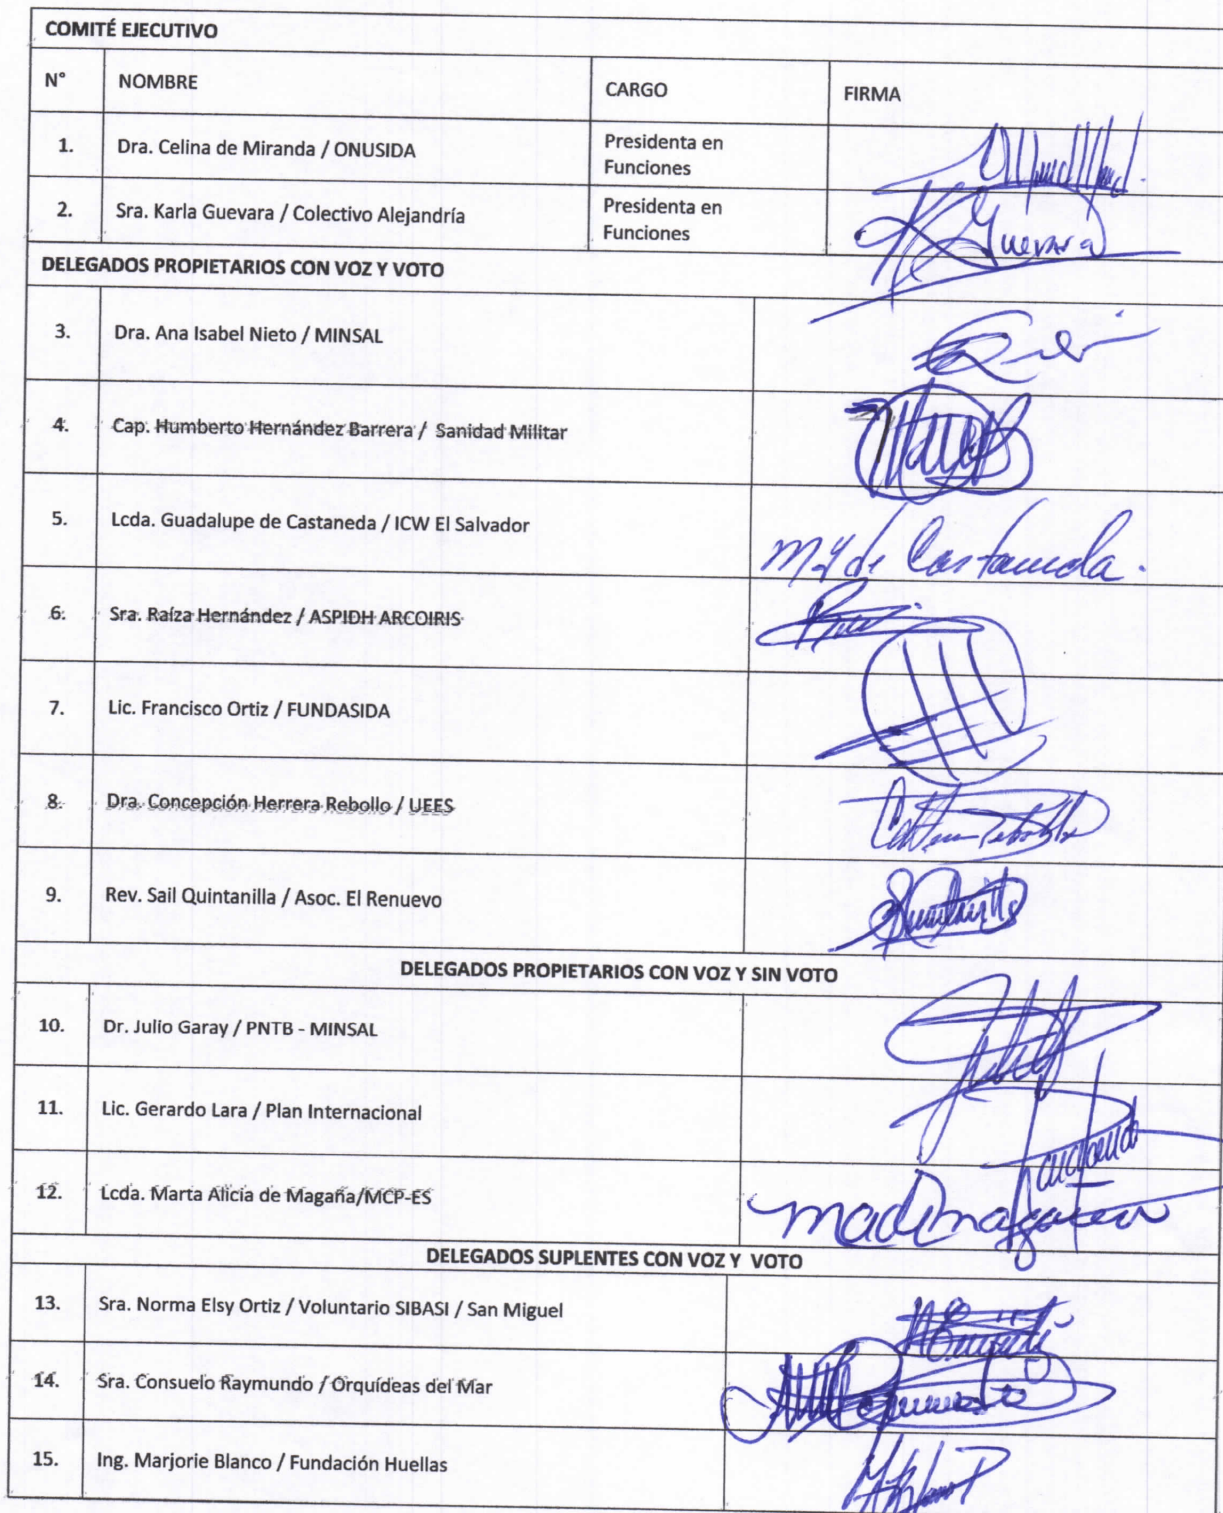 COMITÉ EJECUTIVO
N° NOMBRE CARGO FIRMA
1. Dra. Celina de Miranda / ONUSIDA Presidenta en
Funciones
2. Sra. Karla Guevara / Colectivo Alejandría Presidenta en
Funciones
K Guevara
DELEGADOS PROPIETARIOS CON VOZ Y VOTO
3. Dra. Ana Isabel Nieto / MINSAL
4. Cap. Humberto Hernández Barrera / Sanidad Militar
5. Lcda. Guadalupe de Castaneda / ICW El Salvador de Castaneda.
6. Sra. Raíza Hernández / ASPIDH ARCOIRIS
7. Lic. Francisco Ortiz / FUNDASIDA
8. Dra. Concepción Herrera Rebollo / UEES
9. Rev. Sail Quintanilla / Asoc. El Renuevo
DELEGADOS PROPIETARIOS CON VOZ Y SIN VOTO
10. Dr. Julio Garay / PNTB - MINSAL
11. Lic. Gerardo Lara / Plan Internacional
12. Lcda. Marta Alicia de Magaña/MCP-ES
DELEGADOS SUPLENTES CON VOZ Y VOTO
13. Sra. Norma Elsy Ortiz / Voluntario SIBASI / San Miguel
14. Sra. Consuelo Raymundo / Orquídeas del Mar
15. Ing. Marjorie Blanco / Fundación Huellas